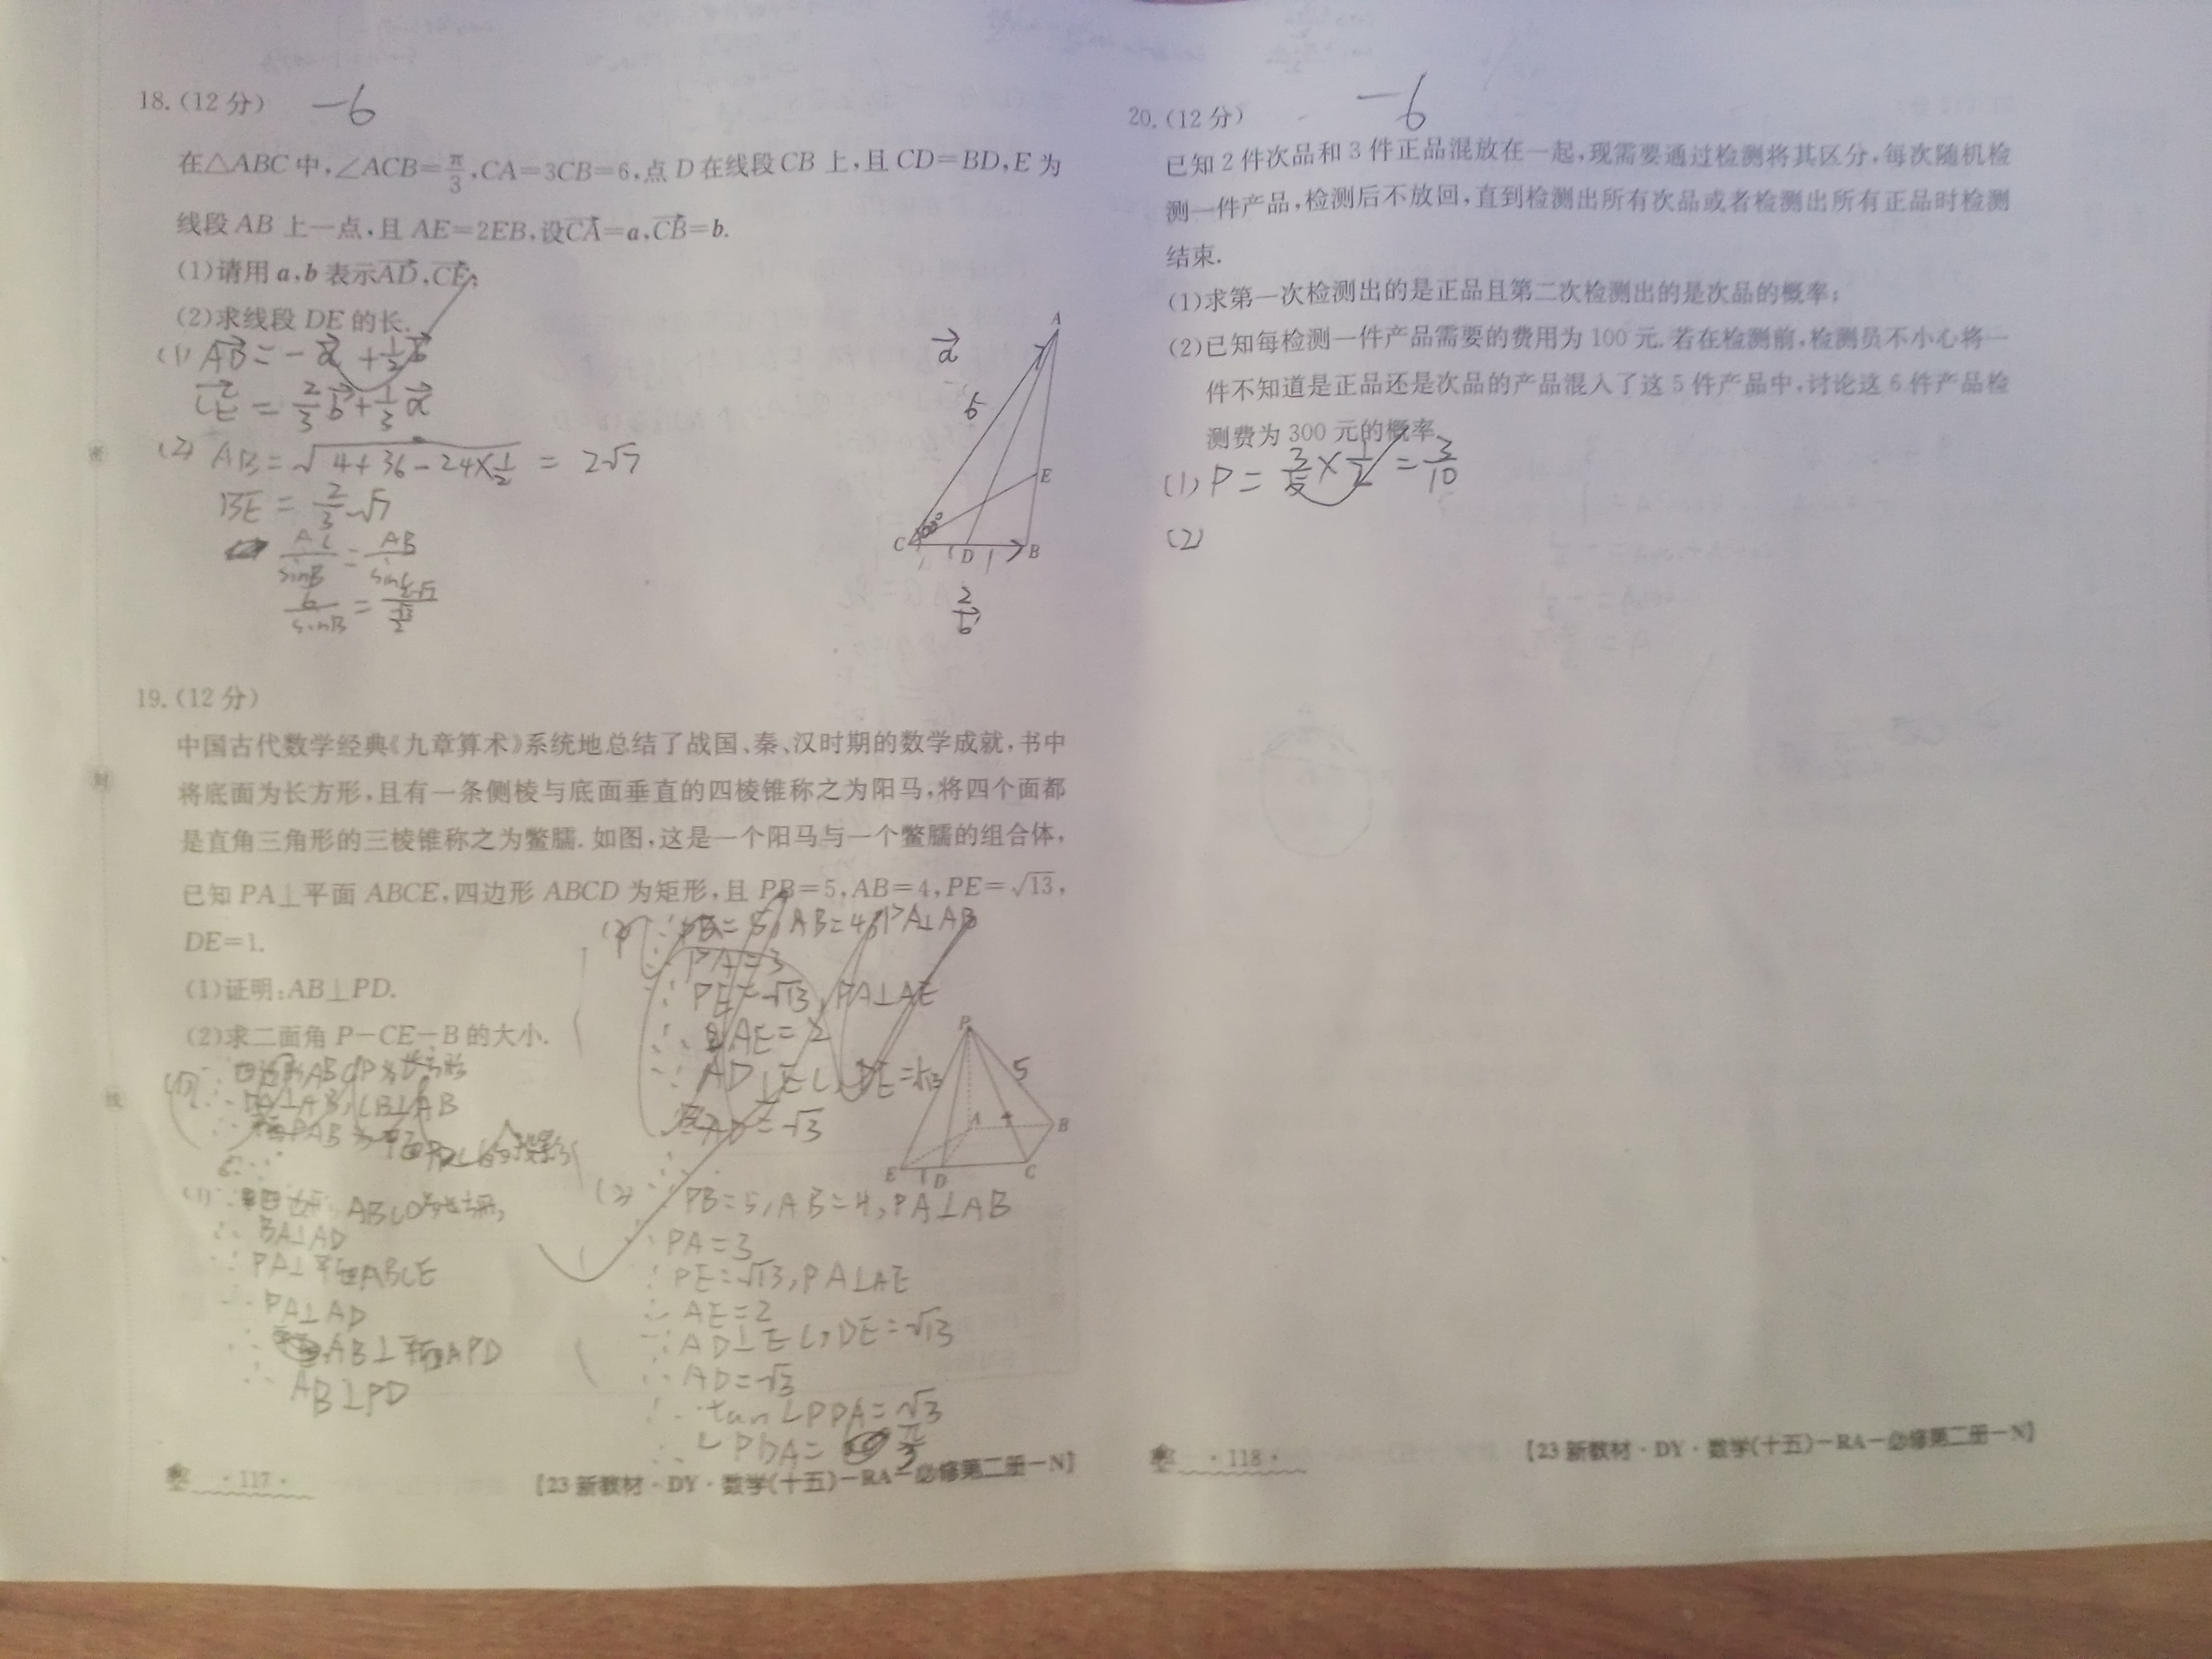 18.(12分) -6
在△ABC中,∠ACB=π/3,CA=3CB=6,点D在线段CB上,且CD=BD,E为
线段AB上一点,且AE=2EB,设CA=a,CB=b.
(1)请用a,b表示AD,CE;
(2)求线段DE的长.
(1) AD=-a+1/2b
CE=2/3b+1/3a
(2) AB=√(4+36-24×1/2)=2√7
BE=2/3√7
AC/sinB=AB/sinC
6/sinB=2√7/(√3/2)
A
a
6
E
60°
C
1
D
1
B
2
b
19.(12分)
中国古代数学经典《九章算术》系统地总结了战国、秦、汉时期的数学成就,书中
将底面为长方形,且有一条侧棱与底面垂直的四棱锥称之为阳马,将四个面都
是直角三角形的三棱锥称之为鳖臑.如图,这是一个阳马与一个鳖臑的组合体,
已知PA⊥平面ABCE,四边形ABCD为矩形,且PB=5,AB=4,PE=√13,
DE=1.
(1)证明:AB⊥PD.
(2)求二面角P-CE-B的大小.
PA=3
∵PE=√13,PA⊥AE
∴AE=2
AD=√3
P
5
A
4
B
E
1
D
C
(1)
ABCD
∴BA⊥AD
∵PA⊥平面ABCE
∴PA⊥AD
∴AB⊥平面APD
∴AB⊥PD
(2)∵PB=5,AB=4,PA⊥AB
∴PA=3
∵PE=√13,PA⊥AE
∴AE=2
∵AD⊥EC,DE=√13
∴AD=√3
∴tan∠PDA=√3
∴∠PDA=π/3
·117·
【23新教材·DY·数学(十五)-RA-必修第二册-N】
20.(12分) -6
已知2件次品和3件正品混放在一起,现需要通过检测将其区分,每次随机检
测一件产品,检测后不放回,直到检测出所有次品或者检测出所有正品时检测
结束.
(1)求第一次检测出的是正品且第二次检测出的是次品的概率;
(2)已知每检测一件产品需要的费用为100元.若在检测前,检测员不小心将一
件不知道是正品还是次品的产品混入了这5件产品中,讨论这6件产品检
测费为300元的概率.
(1)P=3/5×1/2=3/10
(2)
·118·
【23新教材·DY·数学(十五)-RA-必修第二册-N】
密
封
线